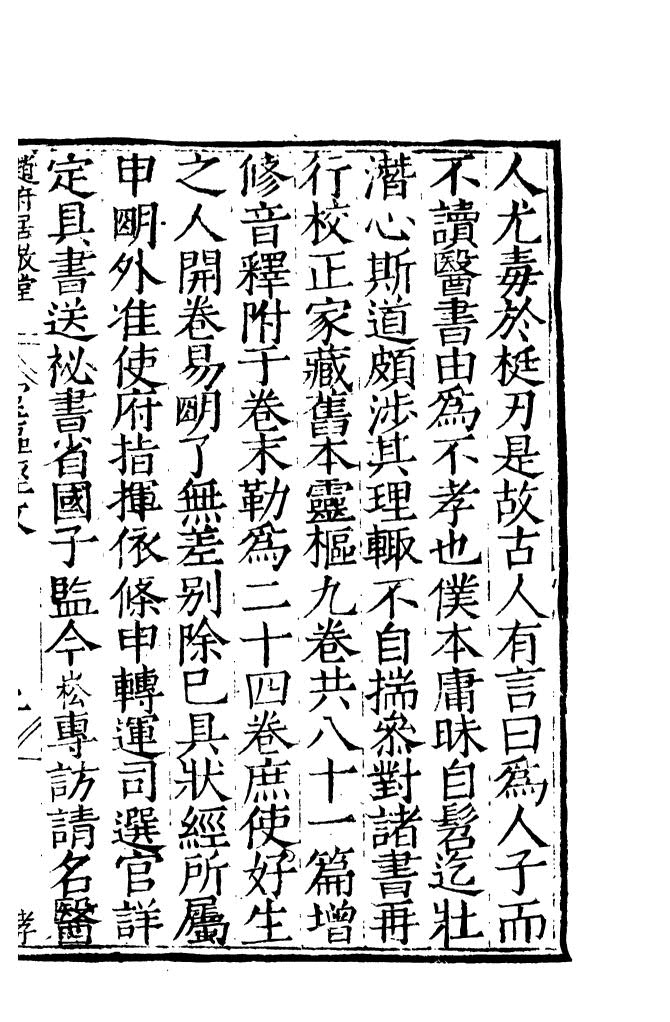 人尤毒於梃刃是故古人有言曰爲人子而
不讀醫書由爲不孝也僕本庸昧自髫迄壯
潛心斯道頗涉其理輙不自揣叅對諸書再
行校正家藏舊本靈樞九卷共八十一篇增
修音釋附于卷末勒爲二十四卷庶使好生
之人開卷易明了無差别除已具狀經所屬
申明外准使府指揮依條申轉運司選官詳
定具書送祕書省國子監今崧專訪請名醫
趙府居敬堂